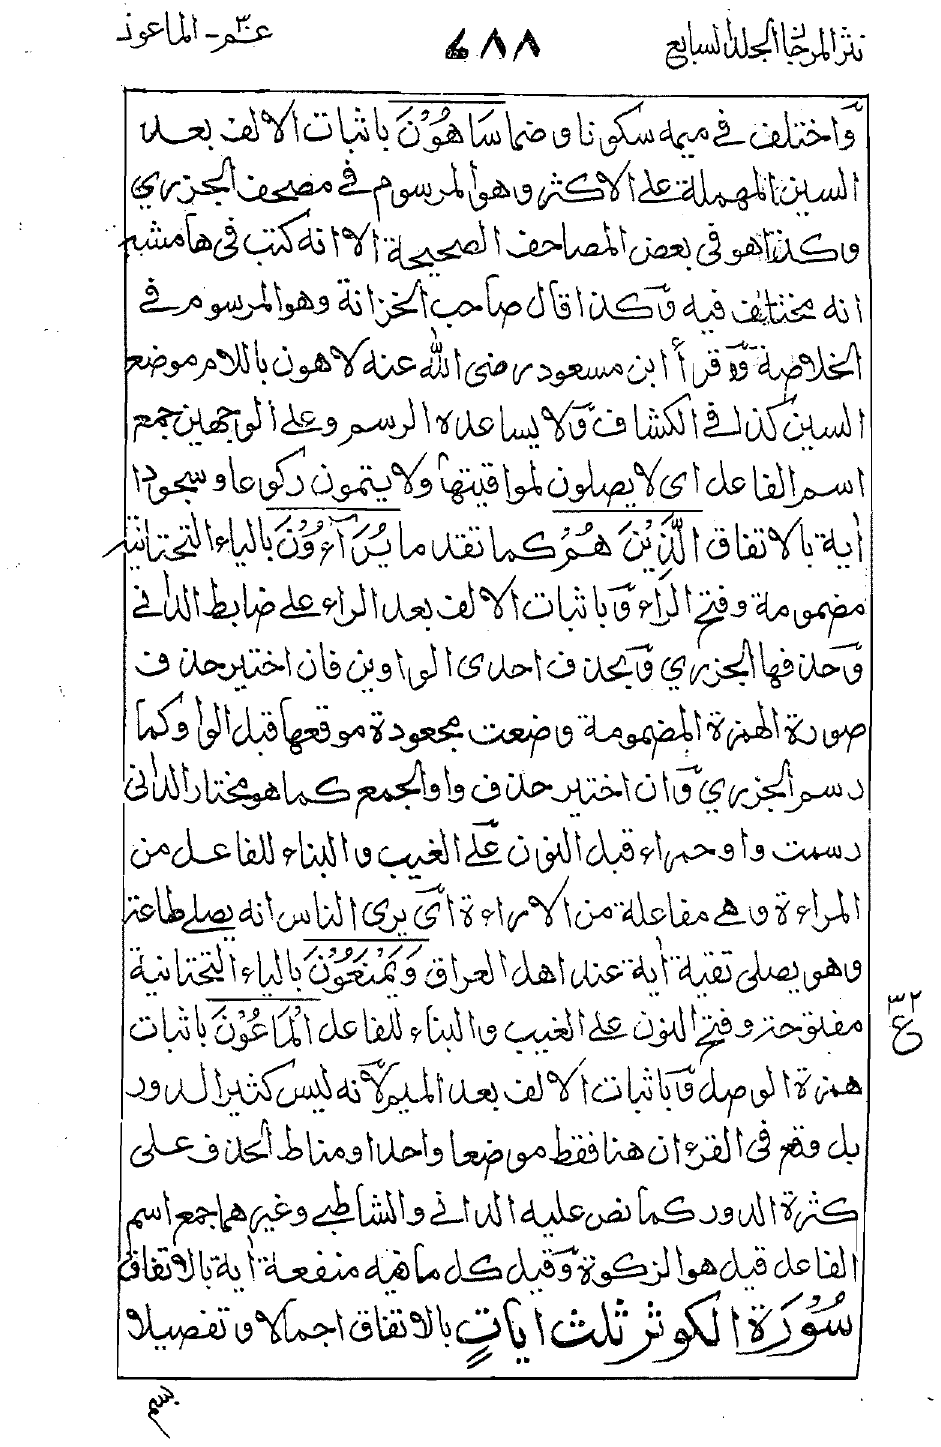 نثر المرجان المجلد السابع
٧٨٨
عم ٣٠ - الماعون
وَّاختلف فى ميمه سكونا و ضما سَاهُوْنَ باثبات الالف بعد
السين المهملة على الاكثر وهو المرسوم فى مصحف الجزري
وكذا هو فى بعض المصاحف الصحيحة الا انه كتب فى هامشه
انه مختلف فيه وّكذا قال صاحب الخزانة وهو المرسوم فى
الخلاصة وّقرأ ابن مسعود رضى الله عنه لاهون باللام موضع
السين كذا فى الكشاف وّلا يساعده الرسم وعلى الوجهين جمع
اسم الفاعل اى لا يصلون لمواقيتها ولا يتمون ركوعا وسجودا
أية بالاتفاق الَّذِيْنَ هُمْ كما تقدما يُرَآءُوْنَ بالياء التحتانية
مضمومة وفتح الراء وّباثبات الالف بعد الراء على ضابط الدانى
وّحذفها الجزري وّبحذف احدى الواوين فان اختير حذف
صورة الهمزة المضمومة وضعت مجعودة موقعها قبل الواو كما
رسم الجزري وّان اختير حذف واو الجمع كما هو مختار الدانى
رسمت واو حمراء قبل النون علّى الغيب والبناء للفاعل من
المراءة وهى مفاعلة من الاراءة اىّ يرى الناس انه يصلى طاعة
وهو يصلى تقية أية عند اهل العراق وَيَمْنَعُوْنَ بالياء التحتانية
مفتوحة وفتح النون على الغيب والبناء للفاعل الْمَاعُوْنَ باثبات
همزة الوصل وّباثبات الالف بعد الميم لاّنه ليس كثير الدور
بل وقع فى القرءان هنا فقط موضعا واحدا ومناط الحذف على
كثرة الدور كما نص عليه الدانى والشاطبى وغيرهما جمع اسم
الفاعل قيل هو الزكوة وّقيل كل ما فيه منفعة أية بالاتفاق
سُوْرَة الكوثر ثلث اياتٍ بالاتفاق اجمالا و تفصيلا
٣٢
ع
بسم